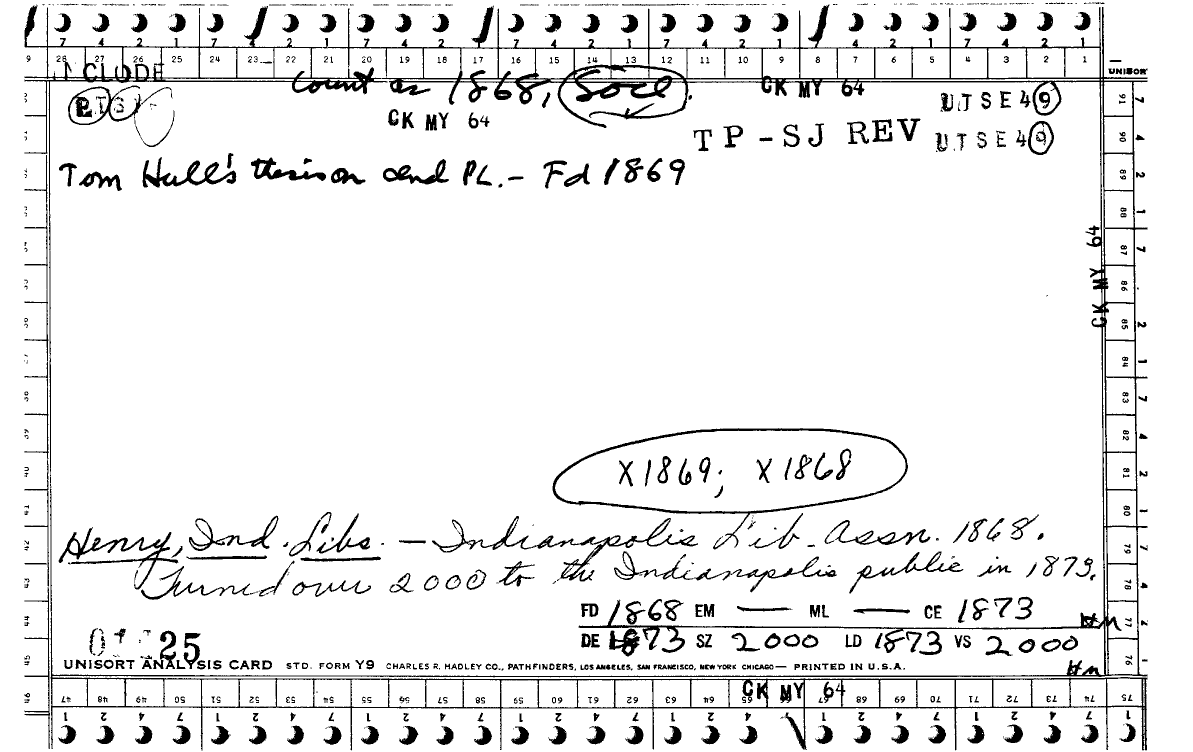 7 4 2 1 7 4 2 1 7 4 2 1 7 4 2 1 7 4 2 1 7 4 2 1 7 4 2 1
28 26 25 24 23 22 21 20 19 18 17 16 15 14 13 12 11 10 9 8 7 6 5 4 3 2 1
UNISOR
CLUDE
Count as 1868, Socl.
CK MY 64
UTSE49
CK MY 64
TP-SJ REV
UTSE49
Tom Hull's thesis on Ind PL. - Fd 1869
CK MY 64
X1869; X1868
Henry, Ind. Libs. — Indianapolis Lib. Assn. 1868.
Turned over 2000 to the Indianapolis public in 1873.
FD 1868 EM — ML — CE 1873
DE 1873 SZ 2000 LD 1873 VS 2000
25
UNISORT ANALYSIS CARD STD. FORM Y9 CHARLES R. HADLEY CO., PATHFINDERS, LOS ANGELES, SAN FRANCISCO, NEW YORK CHICAGO — PRINTED IN U.S.A.
CK MY 64
91 90 89 88 87 86 85 84 83 82 81 80 79 78 77 76
47 48 49 50 51 52 53 54 55 56 57 58 59 60 61 62 63 64 65 66 67 68 69 70 71 72 73 74 75